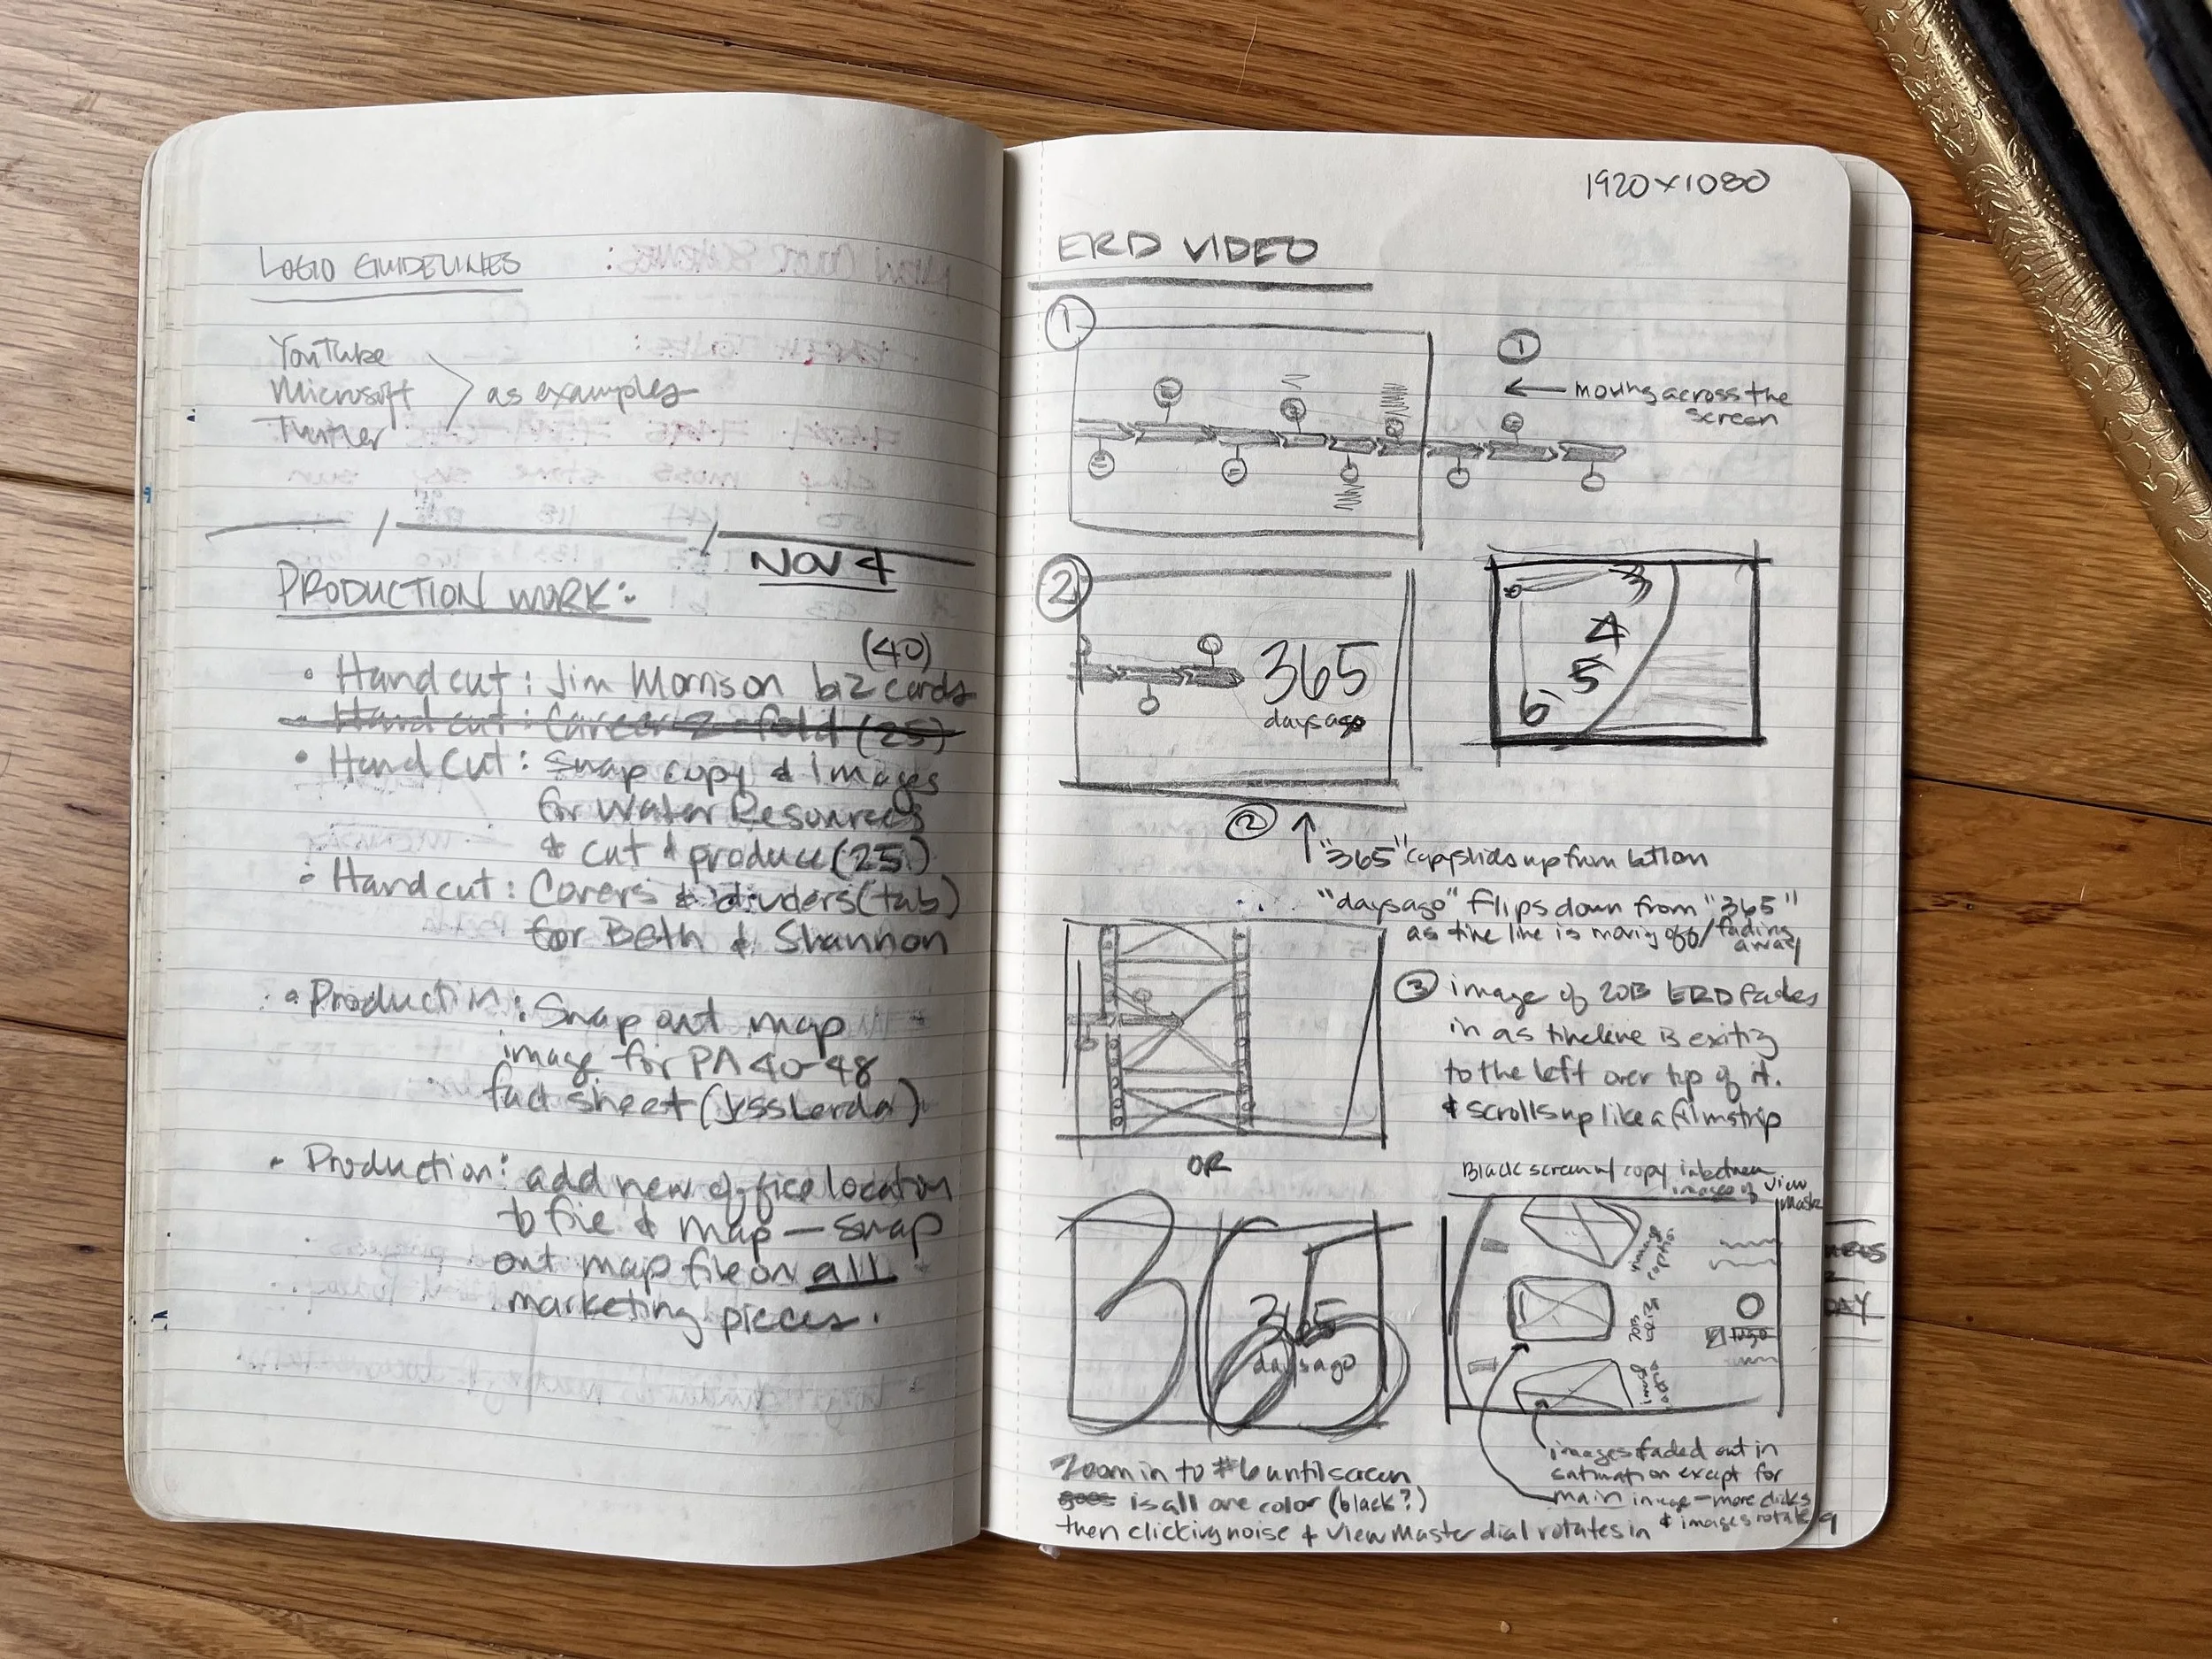 LOGO GUIDELINES
YouTube
Microsoft
Twitter
as examples
NOV 4
PRODUCTION WORK:
(40)
• Hand cut: Jim Morrison biz cards
• Hand cut: Career Z-fold (25)
• Hand Cut: Swap copy & images
for Water Resources
& cut & produce (25)
• Hand cut: Covers & dividers (tab)
for Beth & Shannon
• Production: Swap out map
image for PA 40-48
fact sheet (Jess Lerda)
• Production: add new office location
to file & map — swap
out map file on all
marketing pieces.
1920x1080
ERD VIDEO
1
1
← moving across the
screen
2
365
days ago
3
4
5
6
2 ↑ "365" copy slides up from bottom
"days ago" flips down from "365"
as time line is moving off/fading
away
3 image of 2013 ERD fades
in as timeline is exiting
to the left over top of it.
& scrolls up like a filmstrip
OR
Black screen w/ copy inbetween
images of View
Master
365
365
days ago
image
caption
2013
images faded out in
saturation except for
main image – more clicks
& images rotate
Zoom in to #6 until screen
goes is all one color (black?)
then clicking noise & View Master dial rotates in
DAY